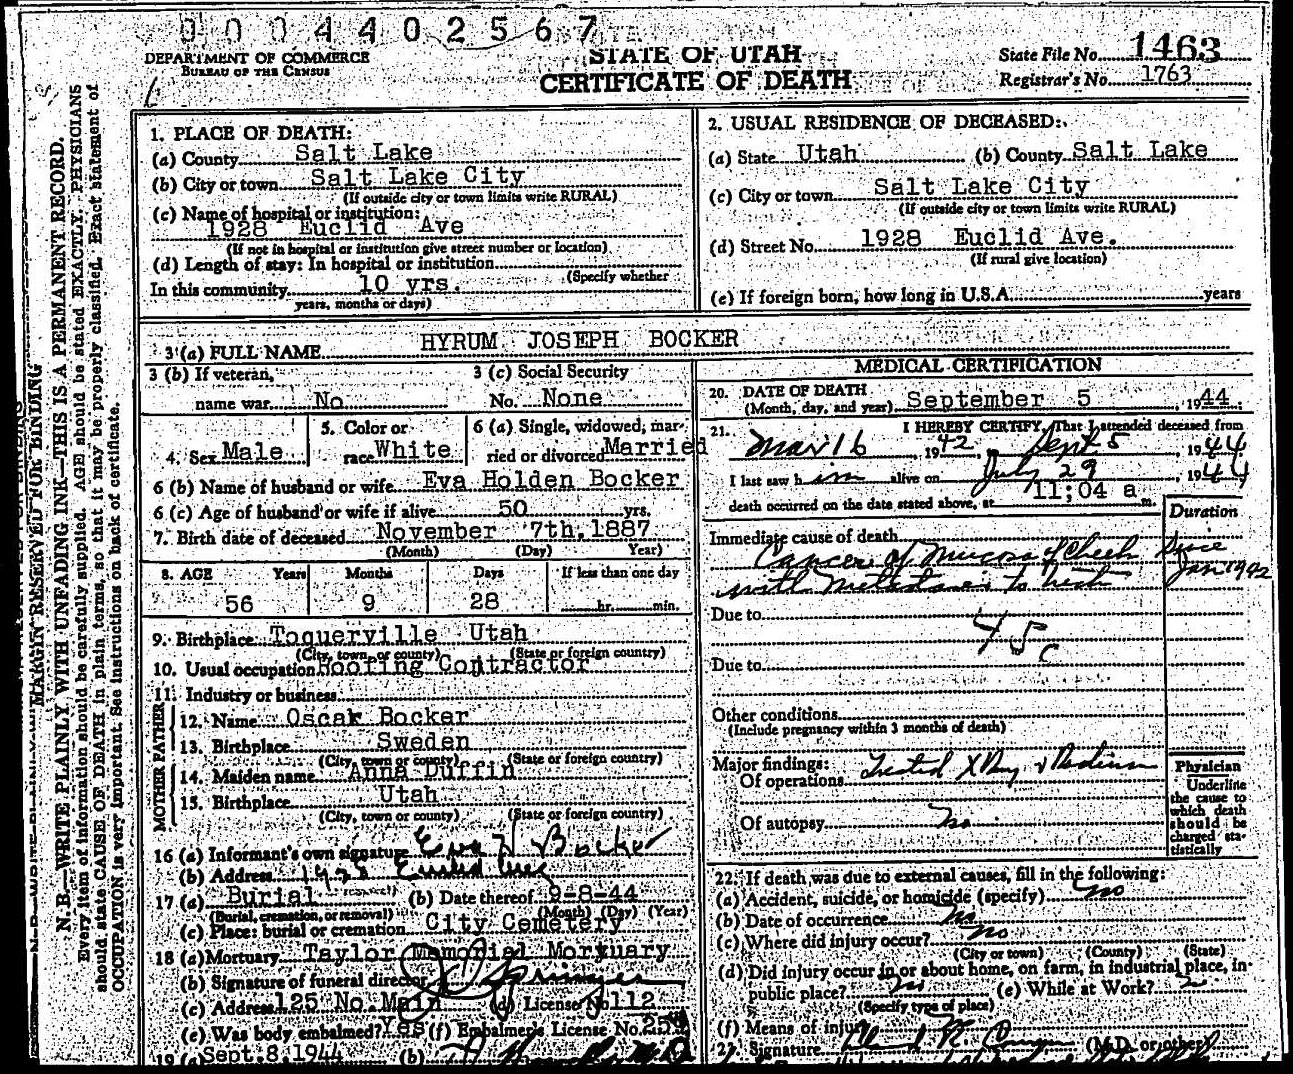 0 0 0 4 4 0 2 5 6 7
DEPARTMENT OF COMMERCE
BUREAU OF THE CENSUS
STATE OF UTAH
CERTIFICATE OF DEATH
State File No. 1463
Registrar's No. 1763
MARGIN RESERVED FOR BINDING
N. B.—WRITE PLAINLY WITH UNFADING INK—THIS IS A PERMANENT RECORD.
Every item of information should be carefully supplied. AGE should be stated EXACTLY. PHYSICIANS
should state CAUSE OF DEATH in plain terms, so that it may be properly classified. Exact statement of
OCCUPATION is very important. See instructions on back of certificate.
1. PLACE OF DEATH:
(a) County Salt Lake
(b) City or town Salt Lake City
(If outside city or town limits write RURAL)
(c) Name of hospital or institution:
1928 Euclid Ave
(If not in hospital or institution give street number or location)
(d) Length of stay: In hospital or institution
(Specify whether
In this community 10 yrs.
years, months or days)
2. USUAL RESIDENCE OF DECEASED:
(a) State Utah (b) County Salt Lake
(c) City or town Salt Lake City
(If outside city or town limits write RURAL)
(d) Street No. 1928 Euclid Ave.
(If rural give location)
(e) If foreign born, how long in U.S.A. years
3 (a) FULL NAME HYRUM JOSEPH BOCKER
3 (b) If veteran,
name war No
3 (c) Social Security
No. None
4. Sex Male
5. Color or
race White
6 (a) Single, widowed, mar-
ried or divorced Married
6 (b) Name of husband or wife Eva Holden Bocker
6 (c) Age of husband or wife if alive 50 yrs.
7. Birth date of deceased November 7th, 1887
(Month) (Day) Year)
8. AGE Years Months Days If less than one day
56 9 28 hr. min.
9. Birthplace Toquerville Utah
(City, town, or county) (State or foreign country)
10. Usual occupation Roofing Contractor
11. Industry or business
FATHER
12. Name Oscar Bocker
13. Birthplace Sweden
(City, town or county) (State or foreign country)
MOTHER
14. Maiden name Anna Duffin
15. Birthplace Utah
(City, town or county) (State or foreign country)
16 (a) Informant's own signature Eva H Bocker
(b) Address 1928 Euclid Ave
17 (a) Burial (b) Date thereof 9-8-44
(Burial, cremation, or removal) (Month) (Day) (Year)
(c) Place: burial or cremation City Cemetery
18 (a) Mortuary Taylor Memorial Mortuary
(b) Signature of funeral director Springer
(c) Address 125 No. Main (d) License No. 112
(e) Was body embalmed? Yes (f) Embalmer's License No. 259
19 (a) Sept. 8, 1944 (b)
MEDICAL CERTIFICATION
20. DATE OF DEATH
(Month, day, and year) September 5, 1944
21. I HEREBY CERTIFY, That I attended deceased from
Mar 16, 1942, Sept 5, 1944
I last saw him alive on July 29, 1944
death occurred on the date stated above, at 11;04 a m.
Duration
Immediate cause of death
Cancer of Mucosa of Cheek Since
with Metastases to neck Jan 1942
Due to
45c
Due to
Other conditions
(Include pregnancy within 3 months of death)
Major findings:
Of operations Treated X Ray & Radium
Of autopsy No
Physician
Underline
the cause to
which death
should be
charged sta-
tistically
22. If death was due to external causes, fill in the following:
(a) Accident, suicide, or homicide (specify) No
(b) Date of occurrence No
(c) Where did injury occur? No
(City or town) (County) (State)
(d) Did injury occur in or about home, on farm, in industrial place, in
public place? No (e) While at Work?
(Specify type of place)
(f) Means of injury
23. Signature (M.D. or other)